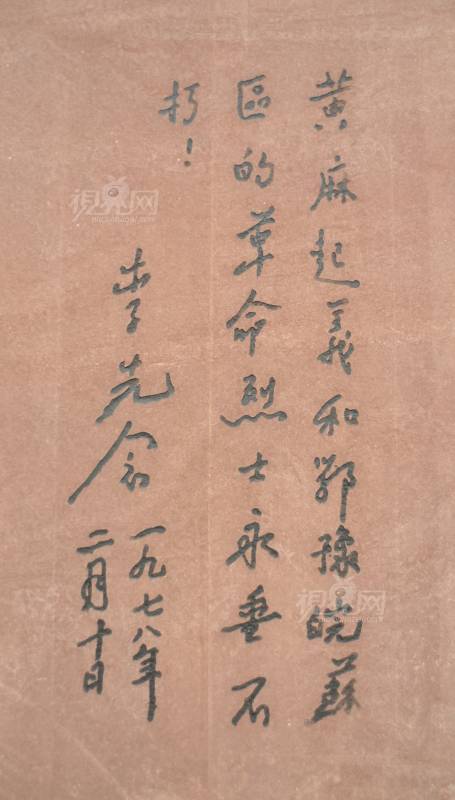 黄麻起義和鄂豫皖蘇
區的革命烈士永垂不
朽！
李先念
一九七八年
二月十日
視覺网
視覺网